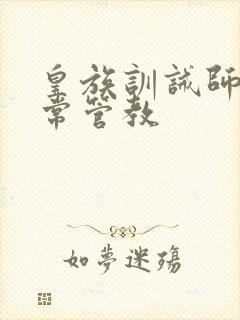 皇族訓誡師
常管教
如夢迷殤